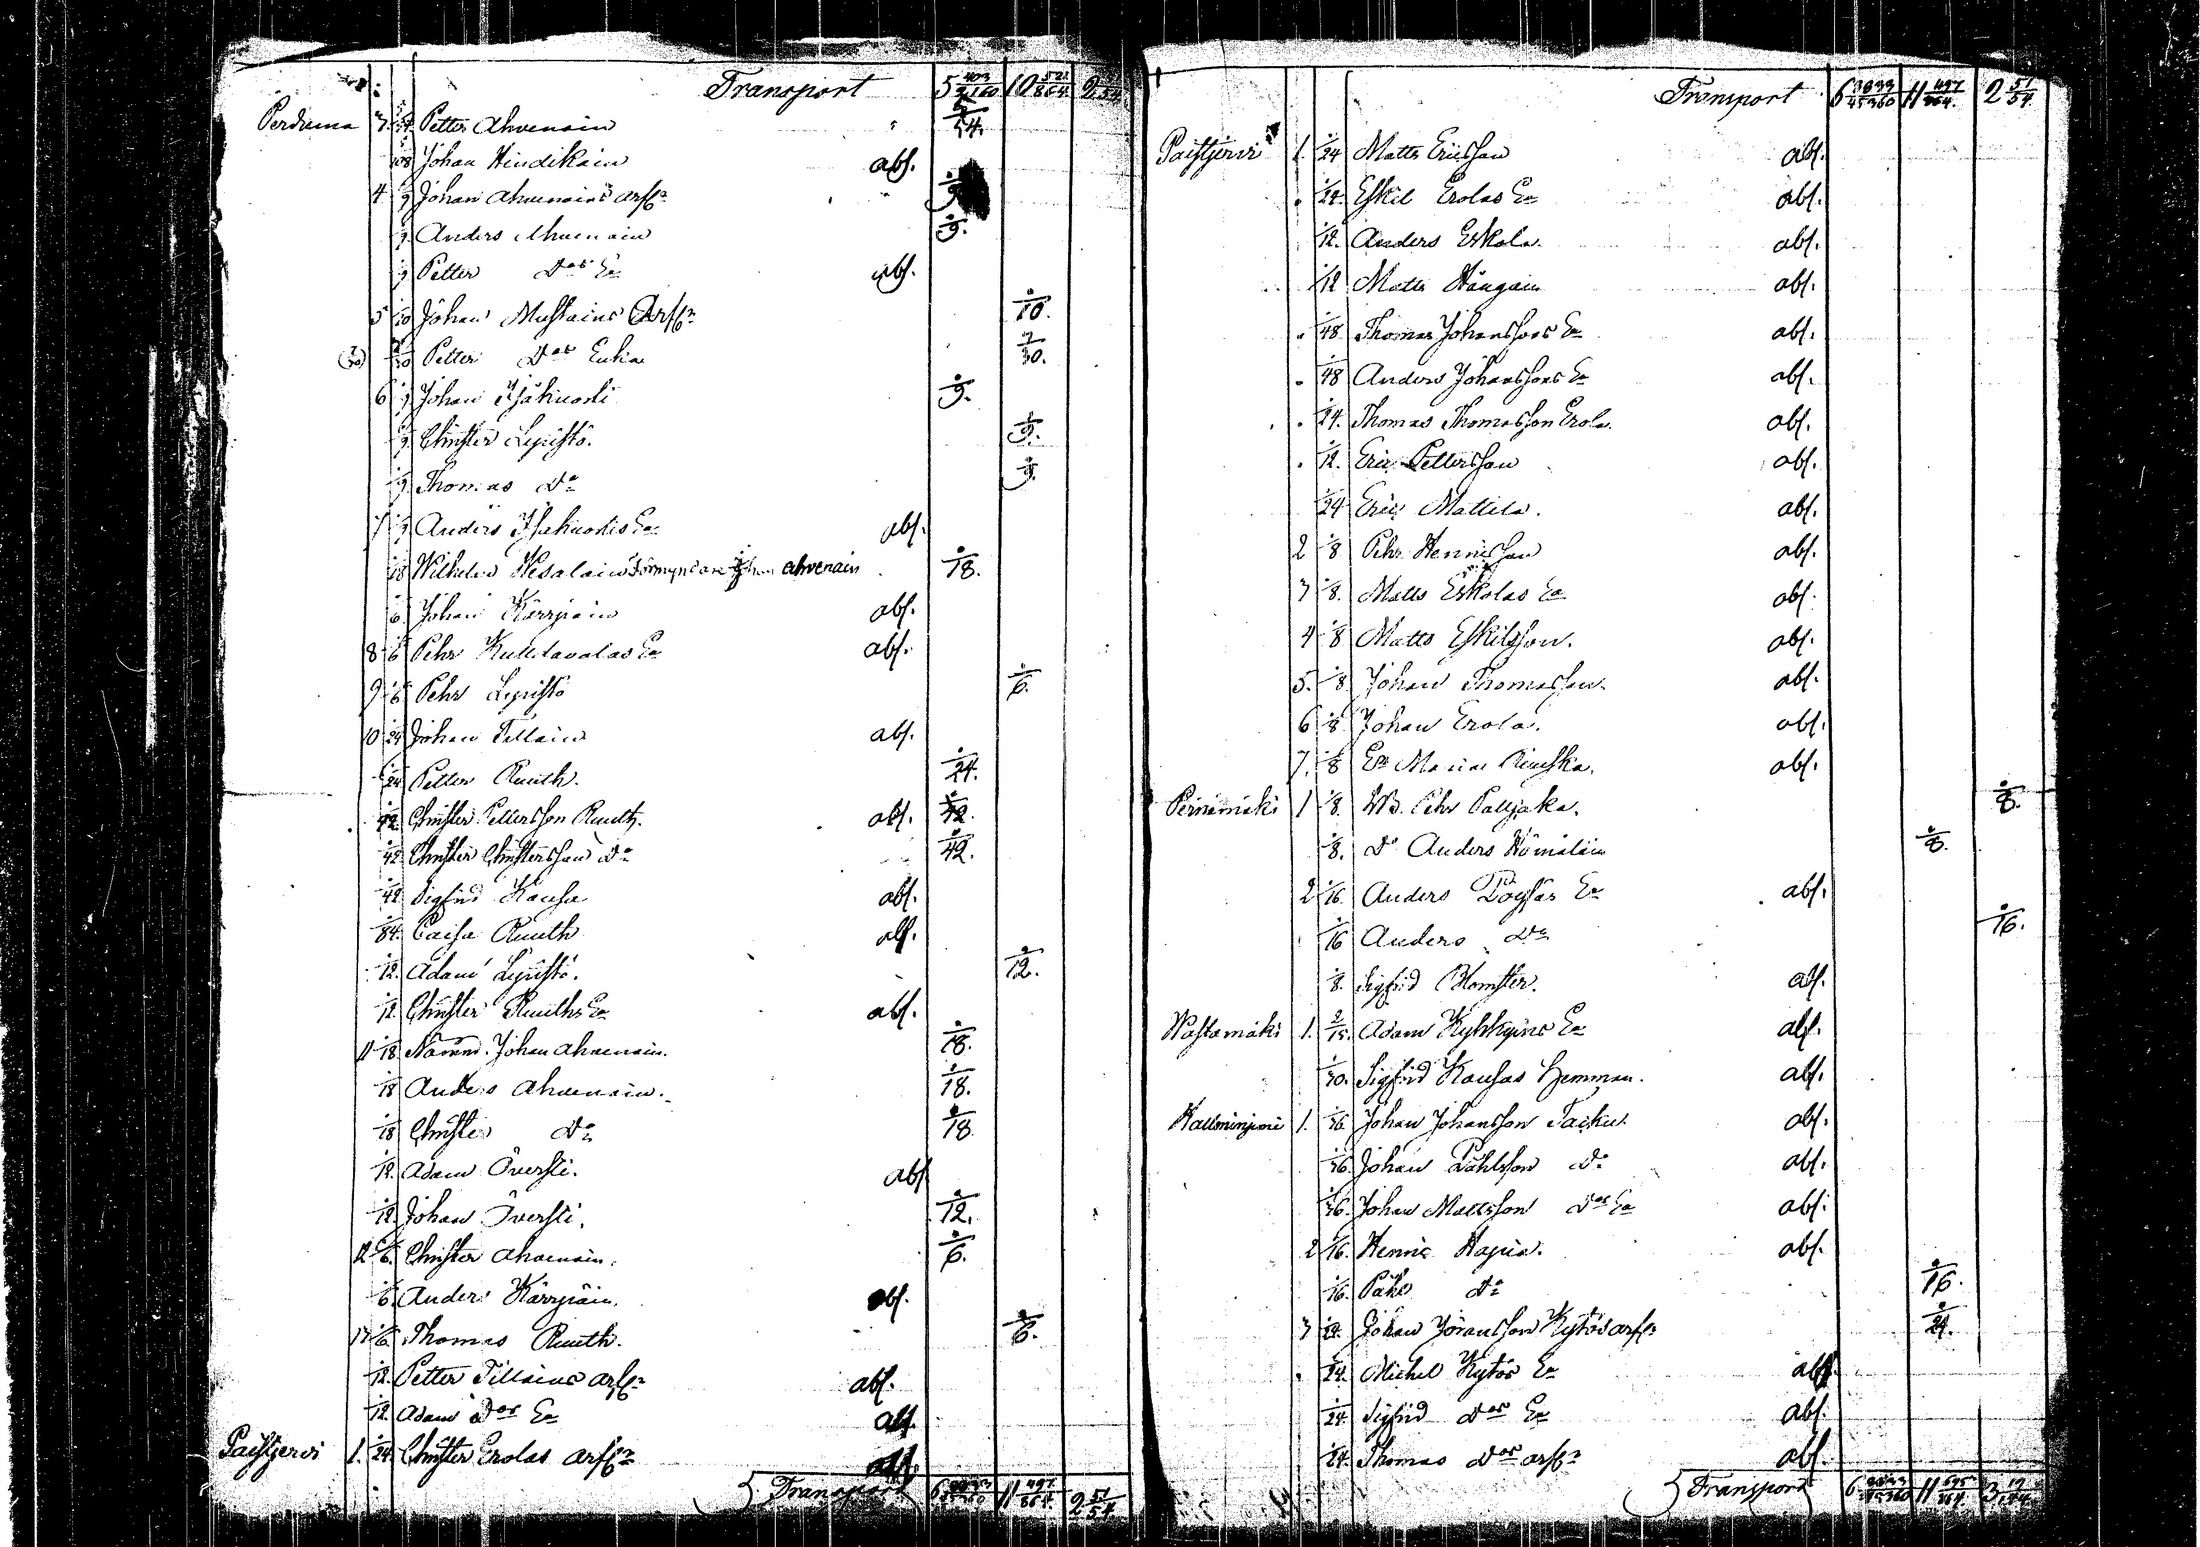 Transport 5 403/2160 10 521/864 2 /54
Perduma 3 Petter Ahvenain /54.
108 Johan Hindikain abs.
4 1/9 Johan Ahvenains arfr 1/9
1/9 Anders Ahvenain 1/9.
1/9 Petter Dos Ea abs.
5 1/10 Johan Mustains Arfr 1/10.
Petter Dos Enka 7/30.
6 1/9 Johan 1/9.
1/9 Christer Lypistö. 1/9.
1/9 Thomas Do 1/9.
7 1/9 Anders Ea abs.
1/18 Wilhelm Wesalain Förmyndare Johan Ahvenain 1/18.
1/6. Johan Kärpiäin abs.
8 1/6 Pehr Ea abs.
9 1/6 Pehr Lypistö 1/6.
10 1/24 Johan Tillain abs.
1/24 Petter Ruuth. 1/24.
1/42 Christer Pettersson Ruuth. abs. 1/42.
1/42 Christer Christersson Do 1/42.
1/42 Sigfrid Kausa abs.
1/84. Caisa Ruuth abs.
1/12. Adam Lypistö. 1/12.
1/12. Christer Ruuths Ea abs.
11 1/18 Nämnd. Johan Ahvenain. 1/18.
1/18 Anders Ahvenain. 1/18.
1/18 Christer Do 1/18
1/12. Adam Översti. abs
1/12. Johan Översti. 1/12.
12 1/6. Christer Ahvenain. 1/6.
1/6. Anders Kärpiäin. abs.
13 1/6. Thomas Ruuth. 1/6.
1/12. Petter Tillains arfr abs.
1/12. Adam Dos Ea abs.
Paistjervi 1. 1/24. Christer Erolas arfr abs.
Transport 6 /45360 11 497/864. 2 51/54
Transport 6 /45360 11 497/864. 2 51/54.
Paistjervi 1. 1/24 Matts Ericsson abs.
1/24. Eskil Erolas Ea abs.
1/12. Anders Eskola. abs.
1/12 Matts Hängain abs.
1/48 Thomas Johanssons Ea abs.
1/48 Anders Johanssons Ea abs.
1/24. Thomas Thomasson Erola. abs.
1/12. Eric Pettersson abs.
1/24 Eric Mattila. abs.
2 1/8 Pehr Henricsson abs.
3 1/8. Matts Eskolas Ea abs.
4 1/8 Matts Eskilsson. abs.
5. 1/8 Johan Thomasson. abs.
6 1/8 Johan Erola. abs.
7. 1/8 Ea Maria abs.
1 1/8. Pehr Paljaka. 1/8.
1/8. Do Anders Hömäläin 1/8.
2 1/16. Anders Pöysäs Ea abs.
1/16 Anders Do 1/16.
1/8. Sigfrid Blomster. abs.
Wastamäki 1. 2/15. Adam Kykkyins Ea abs.
1/30. Sigfrid Kausas Hemman. abs.
1. 1/36 Johan Johansson Taiku. abs.
1/36. Johan Påhlsson Do abs.
1/36. Johan Mattsson Dos Ea abs.
2 1/16. Henric Hapia. abs.
1/16. Påhl Do 1/16.
3 1/24. Johan Jöransson Kytös arfr 1/24.
1/24. Michel Kytös Ea abs
1/24. Sigfrid Dos Ea abs.
1/24. Thomas Dos arfr abs.
Transport 6 /45360 11 695/864